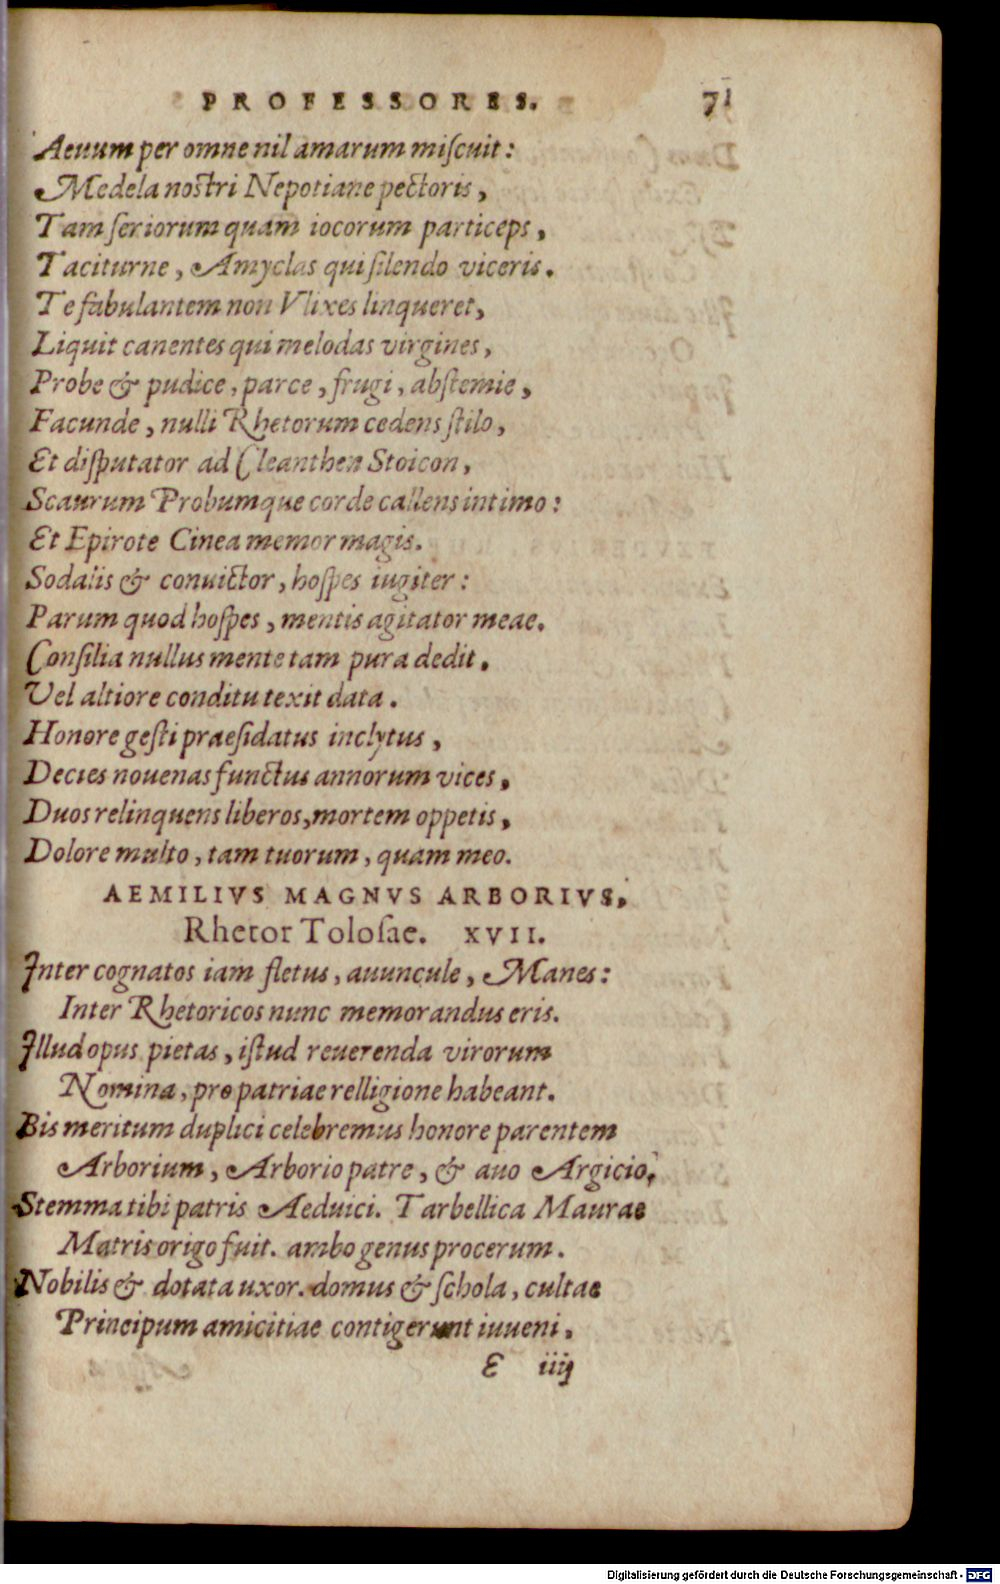 PROFESSORES. 71
Aeuum per omne nil amarum miſcuit:
Medela noſtri Nepotiane pectoris,
Tam ſeriorum quam iocorum particeps,
Taciturne, Amyclas qui ſilendo viceris.
Te fabulantem non Vlixes linqueret,
Liquit canentes qui melodas virgines,
Probe & pudice, parce, frugi, abſtemie,
Facunde, nulli Rhetorum cedens ſtilo,
Et diſputator ad Cleanthen Stoicon,
Scaurum Probumque corde callens intimo:
Et Epirote Cinea memor magis.
Sodalis & conuictor, hoſpes iugiter:
Parum quod hoſpes, mentis agitator meae.
Conſilia nullus mente tam pura dedit.
Vel altiore conditu texit data.
Honore geſti praeſidatus inclytus,
Decies nouenas functus annorum vices,
Duos relinquens liberos, mortem oppetis,
Dolore multo, tam tuorum, quam meo.
AEMILIVS MAGNVS ARBORIVS.
Rhetor Toloſae. XVII.
Inter cognatos iam fletus, auuncule, Manes:
Inter Rhetoricos nunc memorandus eris.
Illud opus pietas, iſtud reuerenda virorum
Nomina, pro patriae relligione habeant.
Bis meritum duplici celebremus honore parentem
Arborium, Arborio patre, & auo Argicio.
Stemma tibi patris Aeduici. Tarbellica Maurae
Matris origo fuit. ambo genus procerum.
Nobilis & dotata uxor. domus & ſchola, cultae
Principum amicitiae contigerunt iuueni,
E iiij
Digitalisierung gefördert durch die Deutsche Forschungsgemeinschaft - DFG